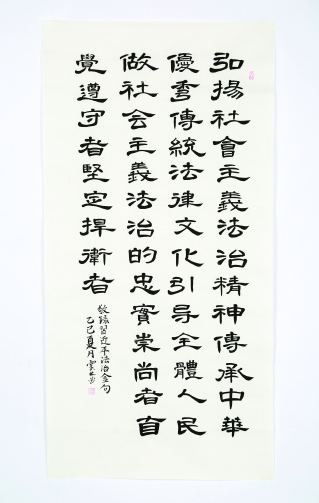 弘揚社會主義法治精神傳承中華
優秀傳統法律文化引导全體人民
做社会主義法治的忠實崇尚者自
覺遵守者堅定捍衛者
敬録習近平法治金句
乙巳夏月